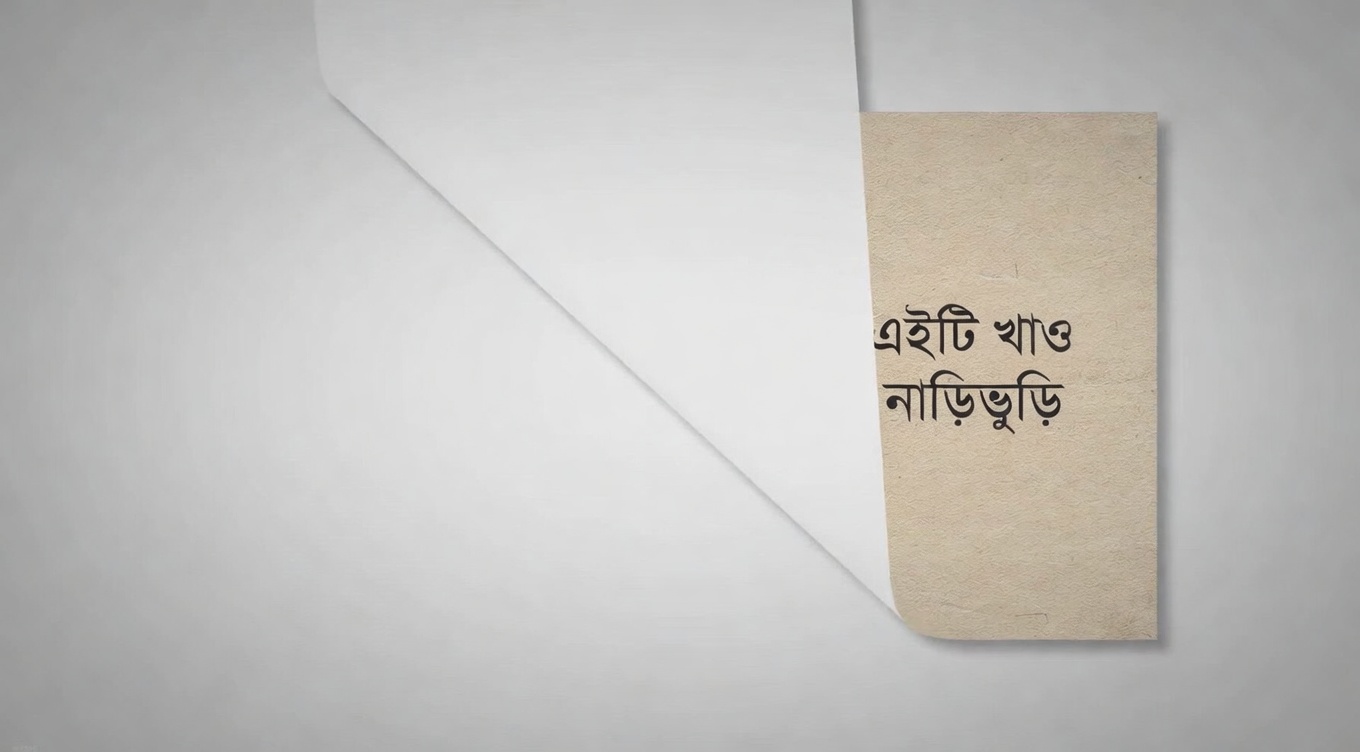 এইটি খাও
নাড়িভুড়ি